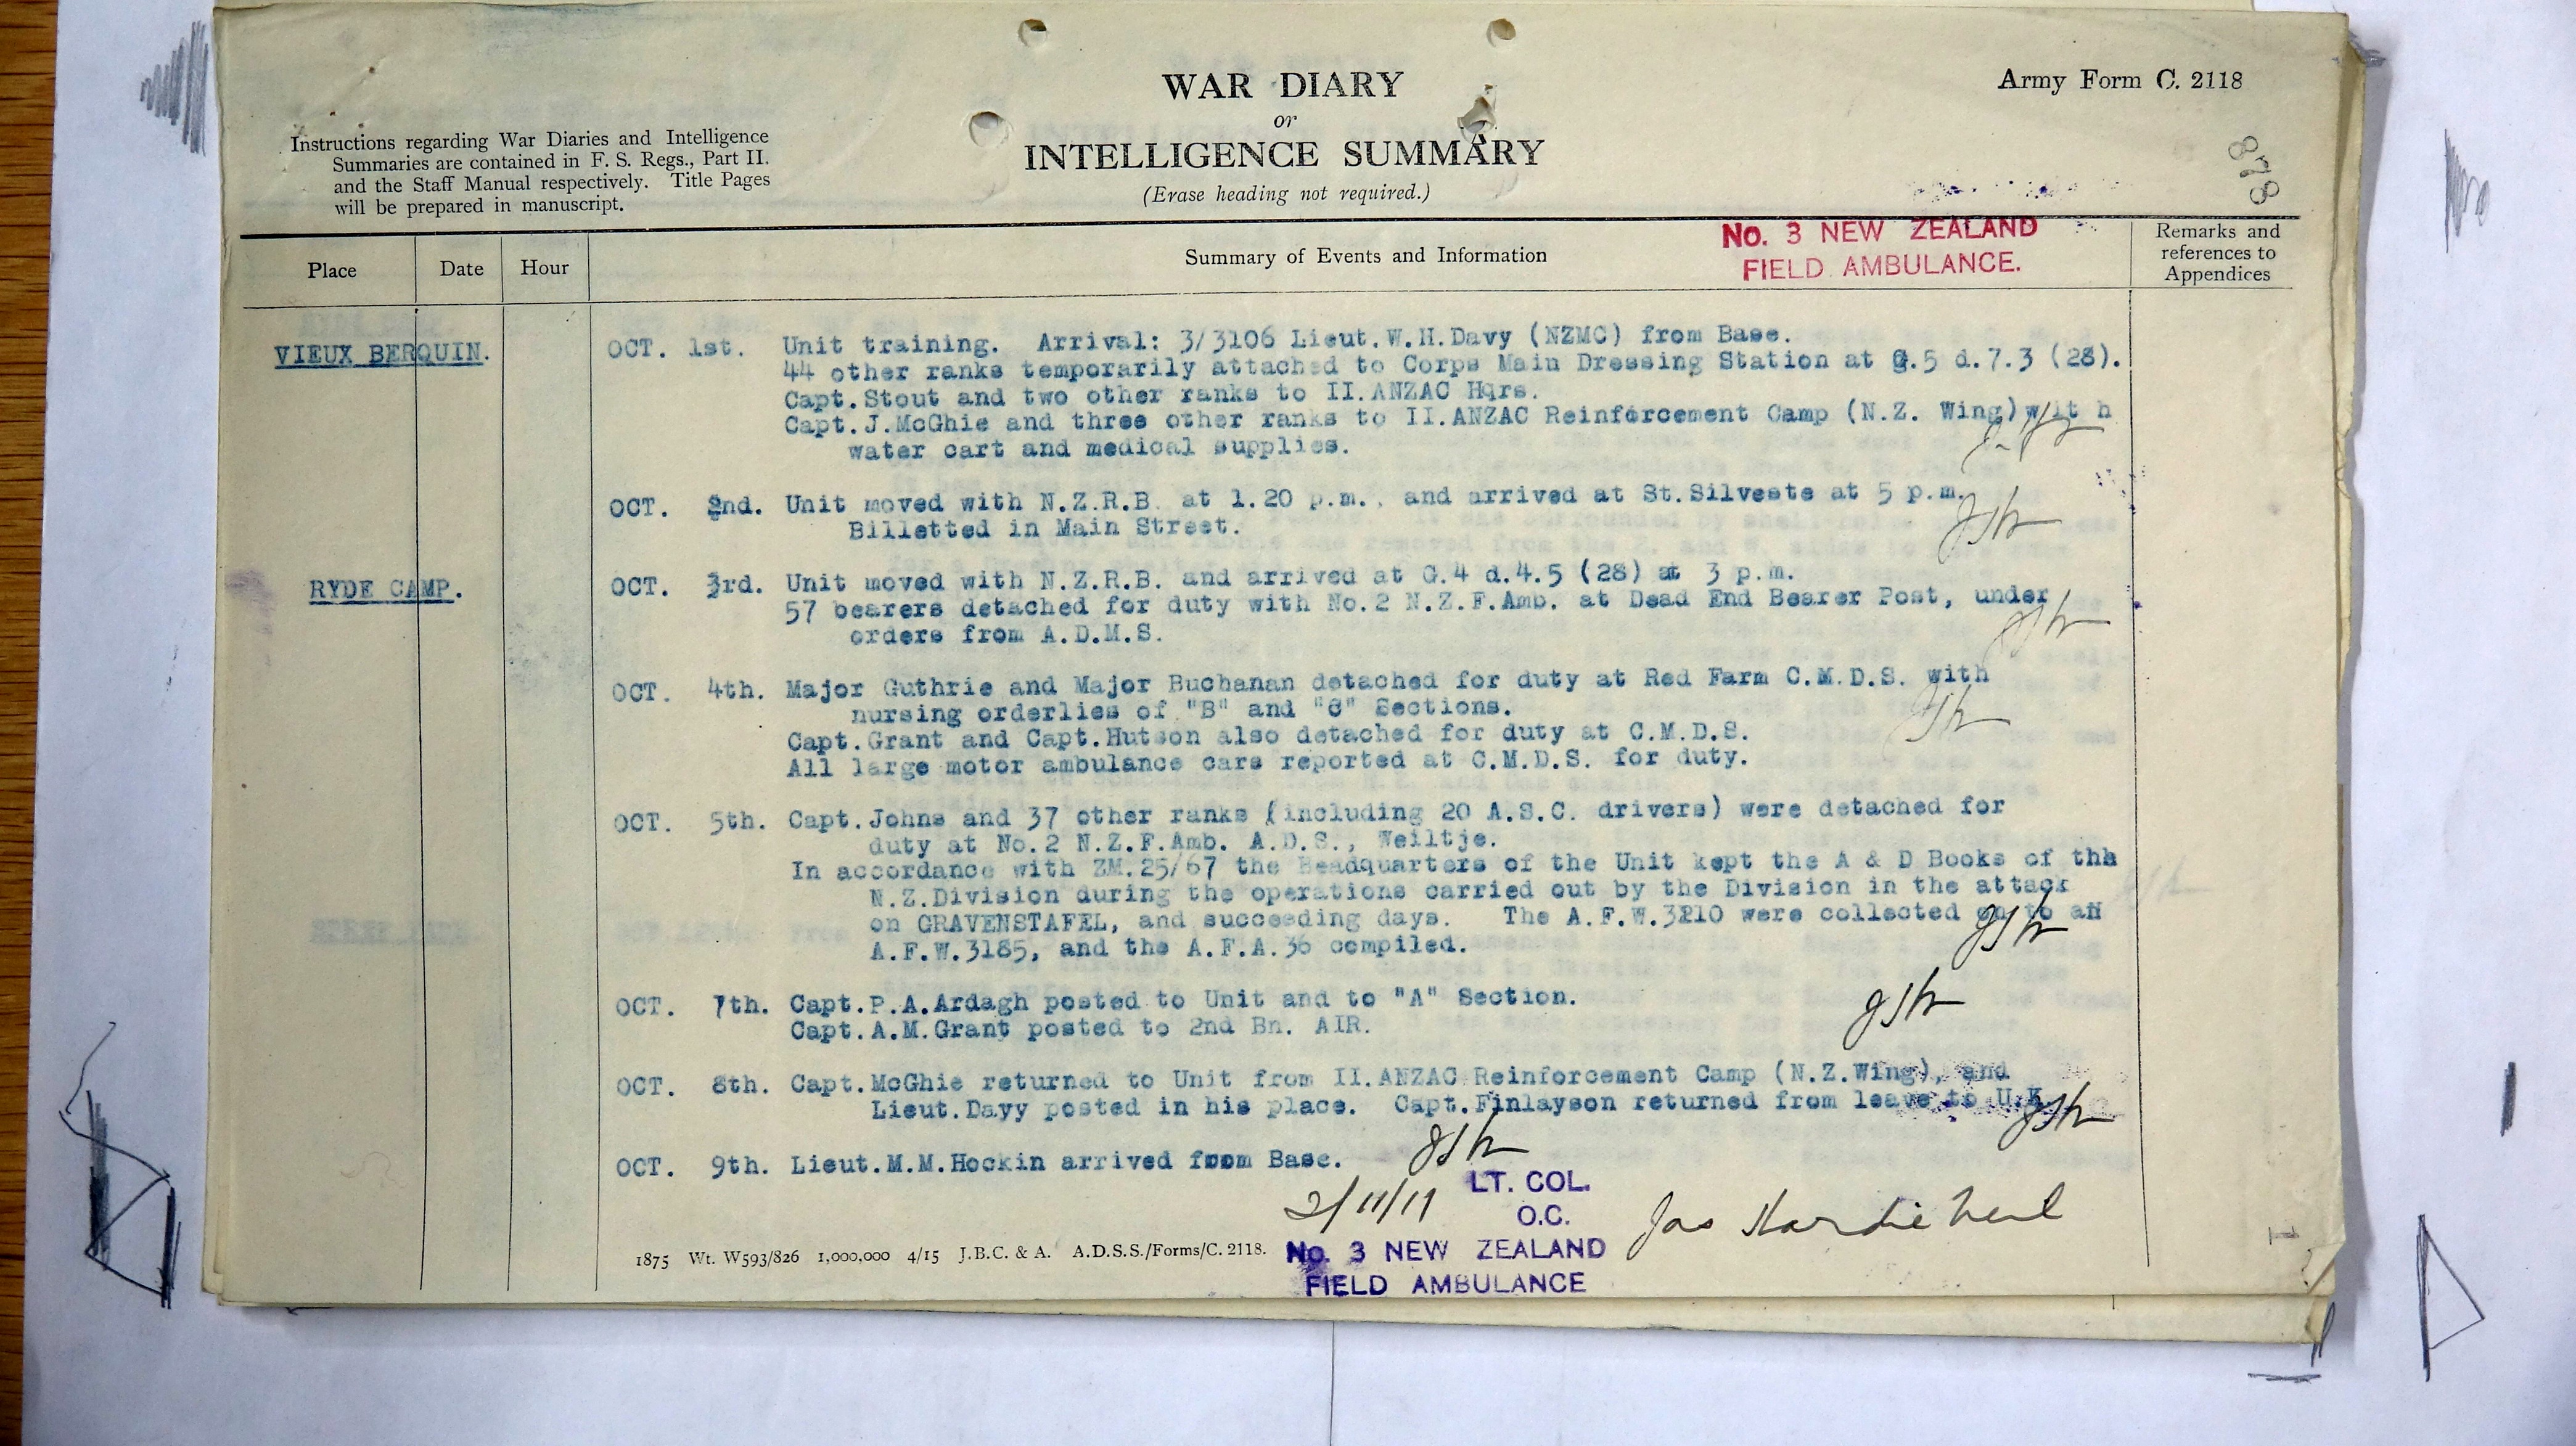 WAR DIARY
or
INTELLIGENCE SUMMARY
(Erase heading not required.)
Army Form C. 2118
Instructions regarding War Diaries and Intelligence
Summaries are contained in F. S. Regs., Part II.
and the Staff Manual respectively. Title Pages
will be prepared in manuscript.
No. 3 NEW ZEALAND
FIELD AMBULANCE.
Place Date Hour Summary of Events and Information
Remarks and
references to
Appendices
VIEUX BERQUIN. OCT. 1st. Unit training. Arrival: 3/3106 Lieut.W.H.Davy (NZMC) from Base.
44 other ranks temporarily attached to Corps Main Dressing Station at G.5 d.7.3 (28).
Capt.Stout and two other ranks to II.ANZAC Hqrs.
Capt.J.McGhie and three other ranks to II.ANZAC Reinforcement Camp (N.Z. Wing)wit h
water cart and medical supplies.
OCT. 2nd. Unit moved with N.Z.R.B. at 1.20 p.m., and arrived at St.Silveste at 5 p.m.
Billetted in Main Street.
RYDE CAMP. OCT. 3rd. Unit moved with N.Z.R.B. and arrived at G.4 d.4.5 (28) at 3 p.m.
57 bearers detached for duty with No.2 N.Z.F.Amb. at Dead End Bearer Post, under
orders from A.D.M.S.
OCT. 4th. Major Guthrie and Major Buchanan detached for duty at Red Farm C.M.D.S. with
nursing orderlies of "B" and "C" Sections.
Capt.Grant and Capt.Hutson also detached for duty at C.M.D.S.
All large motor ambulance cars reported at C.M.D.S. for duty.
OCT. 5th. Capt.Johns and 37 other ranks (including 20 A.S.C. drivers) were detached for
duty at No.2 N.Z.F.Amb. A.D.S., Weiltje.
In accordance with ZM.25/67 the Headquarters of the Unit kept the A & D Books of the
N.Z.Division during the operations carried out by the Division in the attack
on GRAVENSTAFEL, and succeeding days. The A.F.W.3210 were collected on to an
A.F.W.3185, and the A.F.A.36 compiled.
OCT. 7th. Capt.P.A.Ardagh posted to Unit and to "A" Section.
Capt.A.M.Grant posted to 2nd Bn. AIR.
OCT. 8th. Capt.McGhie returned to Unit from II.ANZAC Reinforcement Camp (N.Z.Wing), and
Lieut.Dayy posted in his place. Capt.Finlayson returned from leave to U.K.
OCT. 9th. Lieut.M.M.Hockin arrived from Base.
2/11/17 LT. COL.
O.C.
Jas Hardie Neil
No. 3 NEW ZEALAND
FIELD AMBULANCE
1875 Wt. W593/826 1,000,000 4/15 J.B.C. & A. A.D.S.S./Forms/C. 2118.